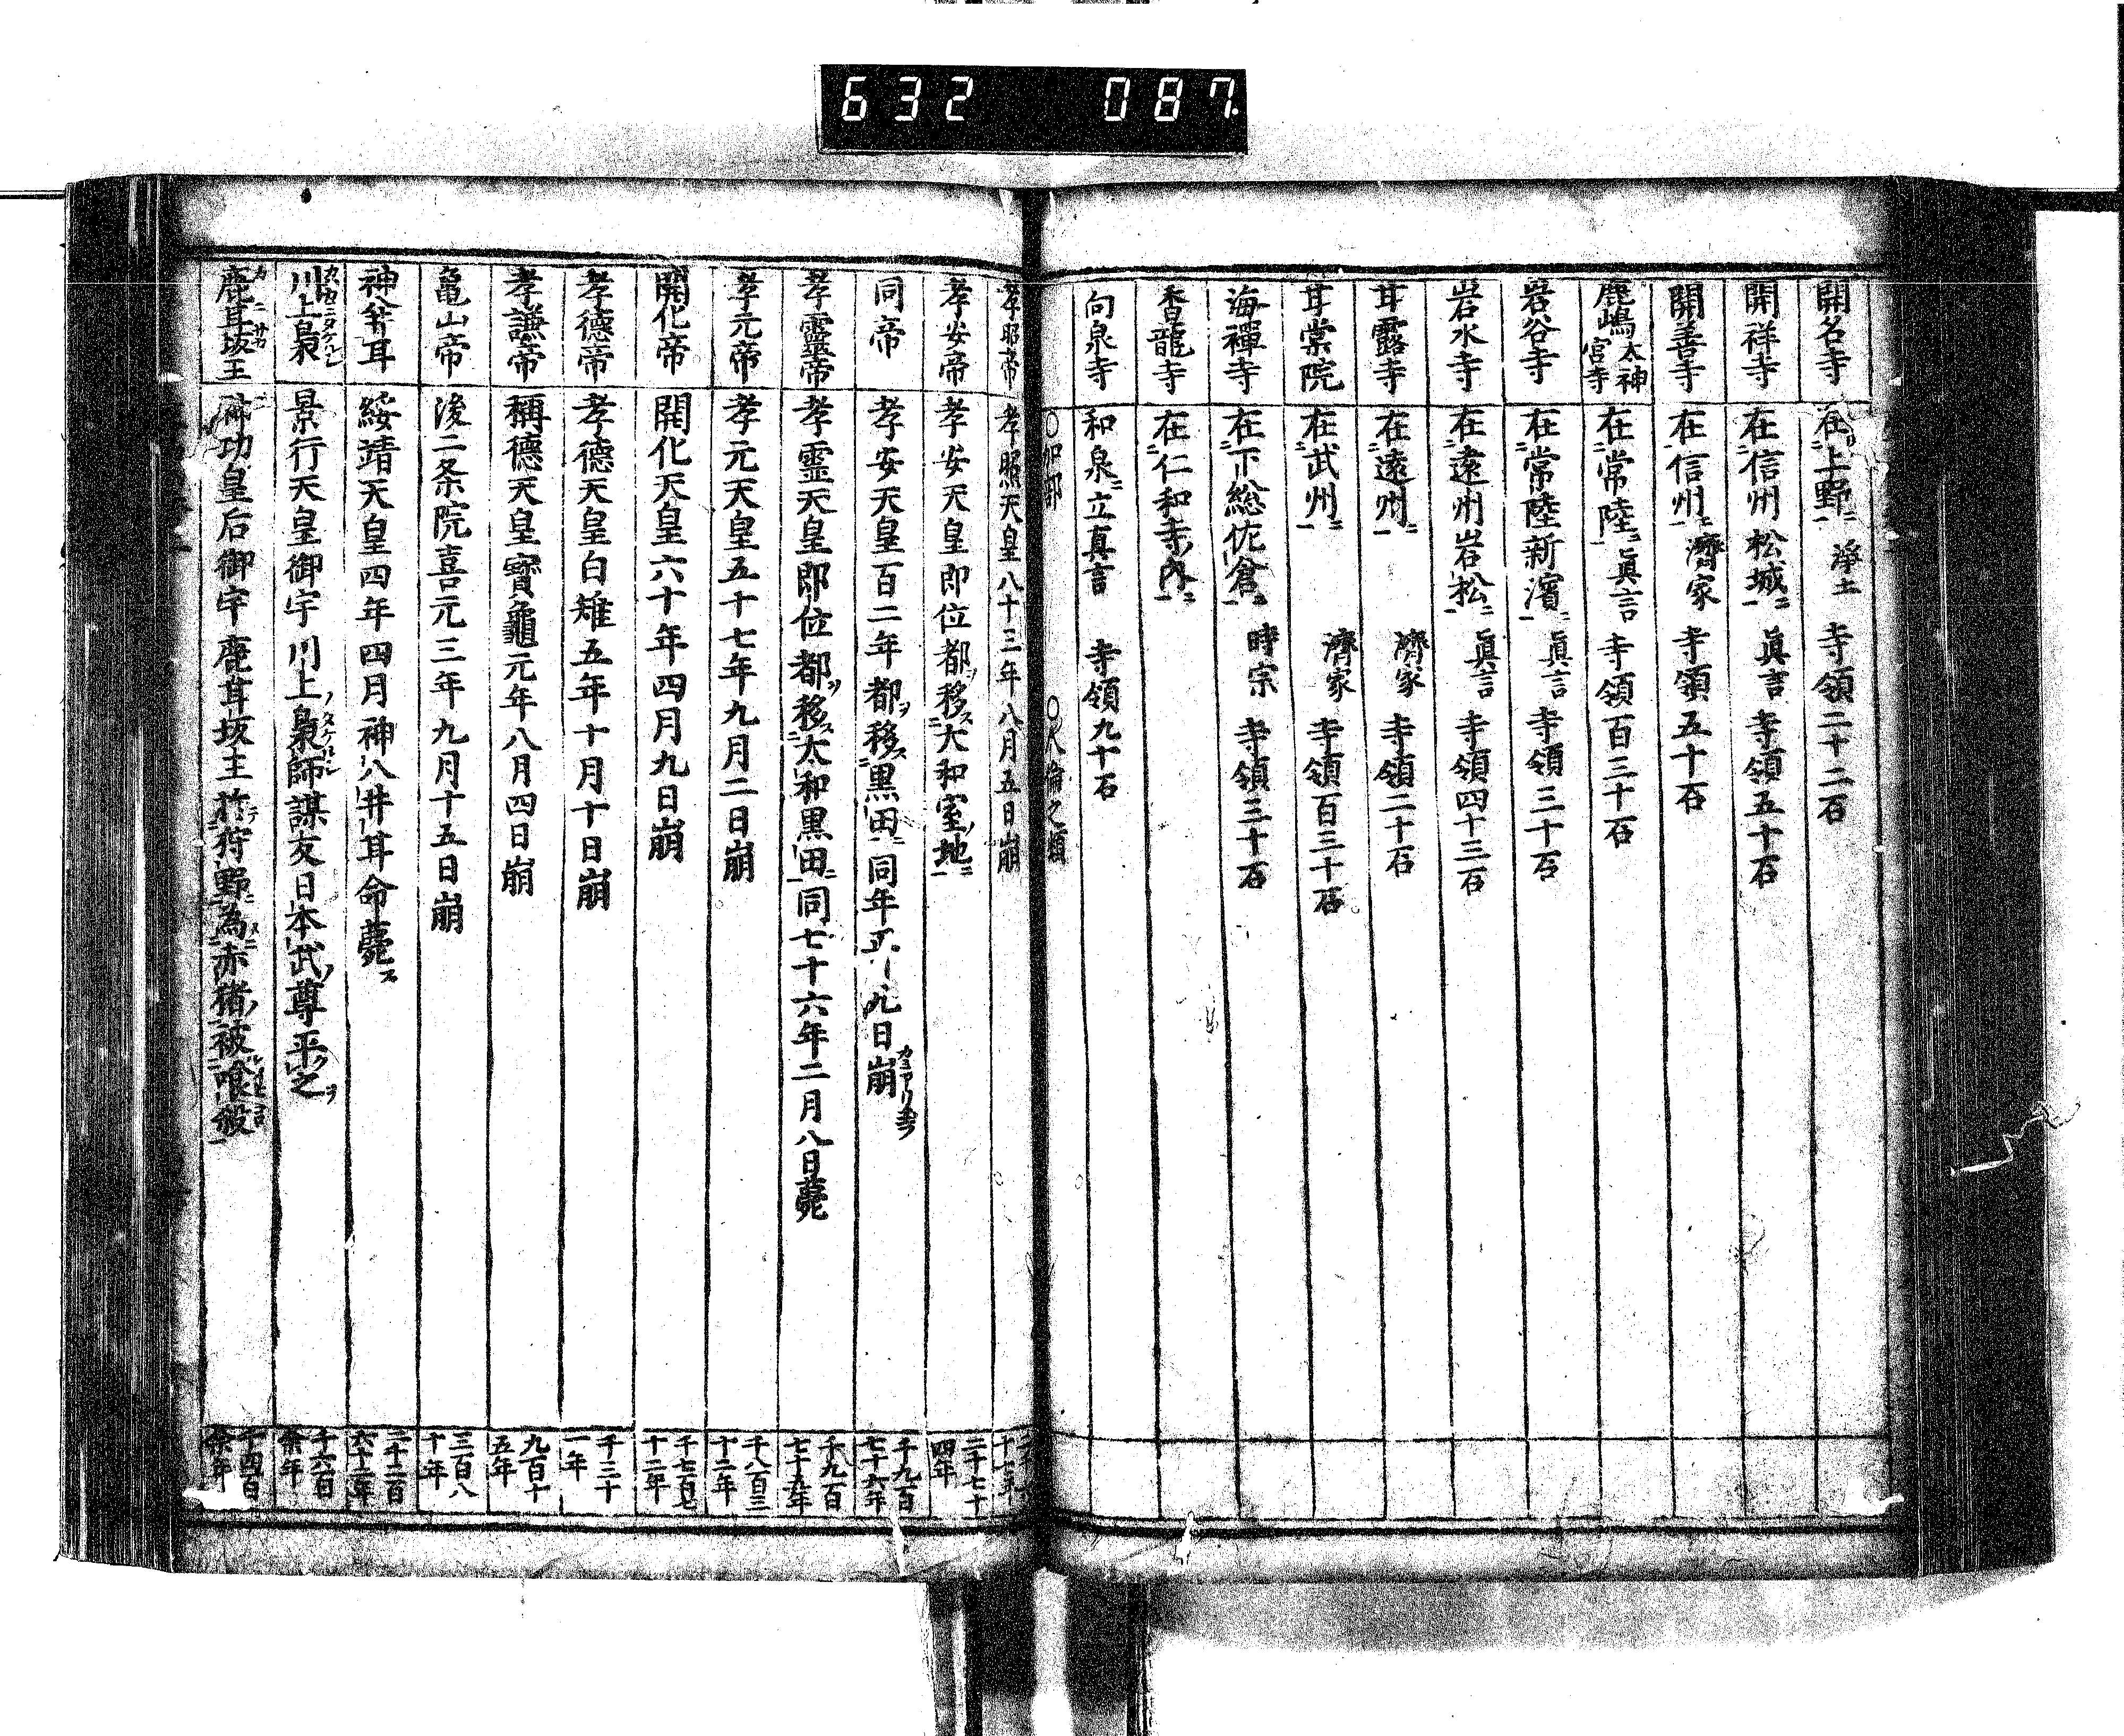 632 087
開名寺 在上野 淨土 寺領二十二石
開祥寺 在信州松城 眞言 寺領五十石
開善寺 在信州 濟家 寺領五十石
鹿嶋太神宮寺 在常陸 眞言 寺領百三十石
岩谷寺 在常陸新濱 眞言 寺領三十石
岩水寺 在遠州岩松 眞言 寺領四十三石
甘露寺 在遠州 濟家 寺領二十石
甘棠院 在武州 濟家 寺領百三十石
海禪寺 在下総佐倉 時宗 寺領三十石
香龍寺 在仁和寺ノ内
向泉寺 和泉立真言 寺領九十石
○加部 ○人倫之類
孝昭帝 孝照天皇八十三年八月五日崩
孝安帝 孝安天皇即位都ヲ移ス大和室ノ地ニ 二千七十四年
同帝 孝安天皇百二年都ヲ移ス黒田ニ同年正月九日崩 千九百七十六年
孝靈帝 孝霊天皇即位都ヲ移ス太和黒田ニ同七十六年二月八日薨 千九百七十九年
孝元帝 孝元天皇五十七年九月二日崩 千八百三十二年
開化帝 開化天皇六十年四月九日崩 千七百七十二年
孝德帝 孝德天皇白雉五年十月十日崩 千三十一年
孝謙帝 稱德天皇寳龜元年八月四日崩 九百十五年
亀山帝 後二条院喜元三年九月十五日崩 三百八十年
神八井耳 綏靖天皇四年四月神八井耳命薨ス 二千二百六十二年
川上梟 景行天皇御宇川上ノ梟師謀友日本武ノ尊平之ヲ 千六百余年
鹿茸坂王 神功皇后御宇鹿茸坂王於狩野為赤猪被喰殺 千四百余年